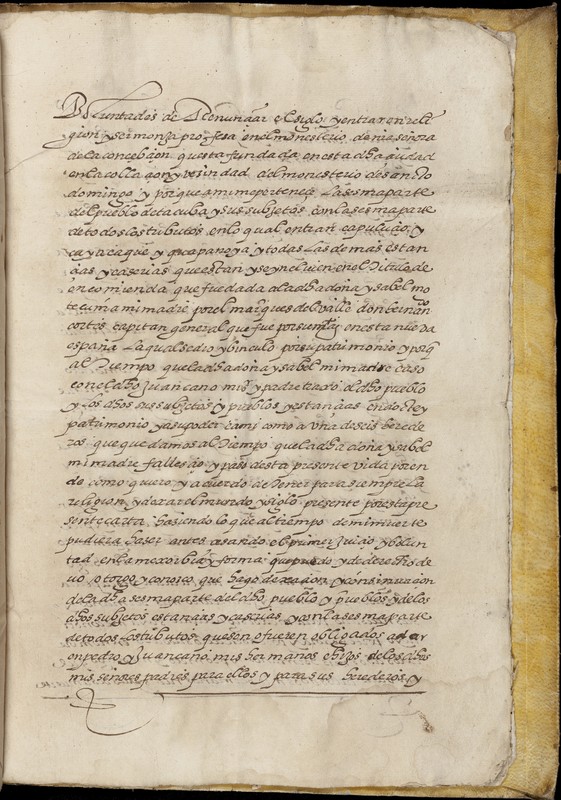 Boluntades de Renunciar el siglo y entrar en reli
gion y ser monja profesa en el monesterio de nra señora
de la concebçion questa fundada en esta dha ciudad
en la collaçion y vesindad del monesterio de sancto
domingo y porque a mi me perteneçe la sesma parte
del pueblo de tacuba y sus subjetos con la sesma parte
de todos los tributos en lo qual entran capuluac y
cuyacaque y gicapanoya y todas las demas estan
cias y caserias que estan y se yncluien en el titulo de
encomienda que fue dada a la dha doña ysabel mo
tecuma mi madre por el marques del valle don fernando
cortes capitan general que fue por su magd en esta nueva
españa la qual se dio y binculo por su patrimonio y porq
al tiempo que la dha doña ysabel mi madre caso
con el dho juan cano mi sr y padre traxo el dho pueblo
y los dhos sus subjetos y pueblos y estancias en dote y
patrimonio a su poder e a mi como a una de seis herede
ros que quedamos al tiempo que la dha doña ysabel
mi madre fallesçio y paso desta presente vida por en
de como quiero y acuerdo de tener para siempre la
religion y dexar el mundo y siglo presente por esta pre
sente carta hasiendo lo que al tiempo de mi muerte
pudiera haser antes usando el primer juicio y bolun
tad en la mexor bia y forma que puedo y de derecho de
vo otorgo y conosco que hago de xacion y consinacion
de la dha sesma parte del dho pueblo y pueblos y de los
dhos subjetos estancias y caserias y con la sesma parte
de todos los tributos que son o fueren obligados a dar
en pedro y juan cano mis hermanos hijos de los dhos
mis señores padres para ellos y para sus herederos y